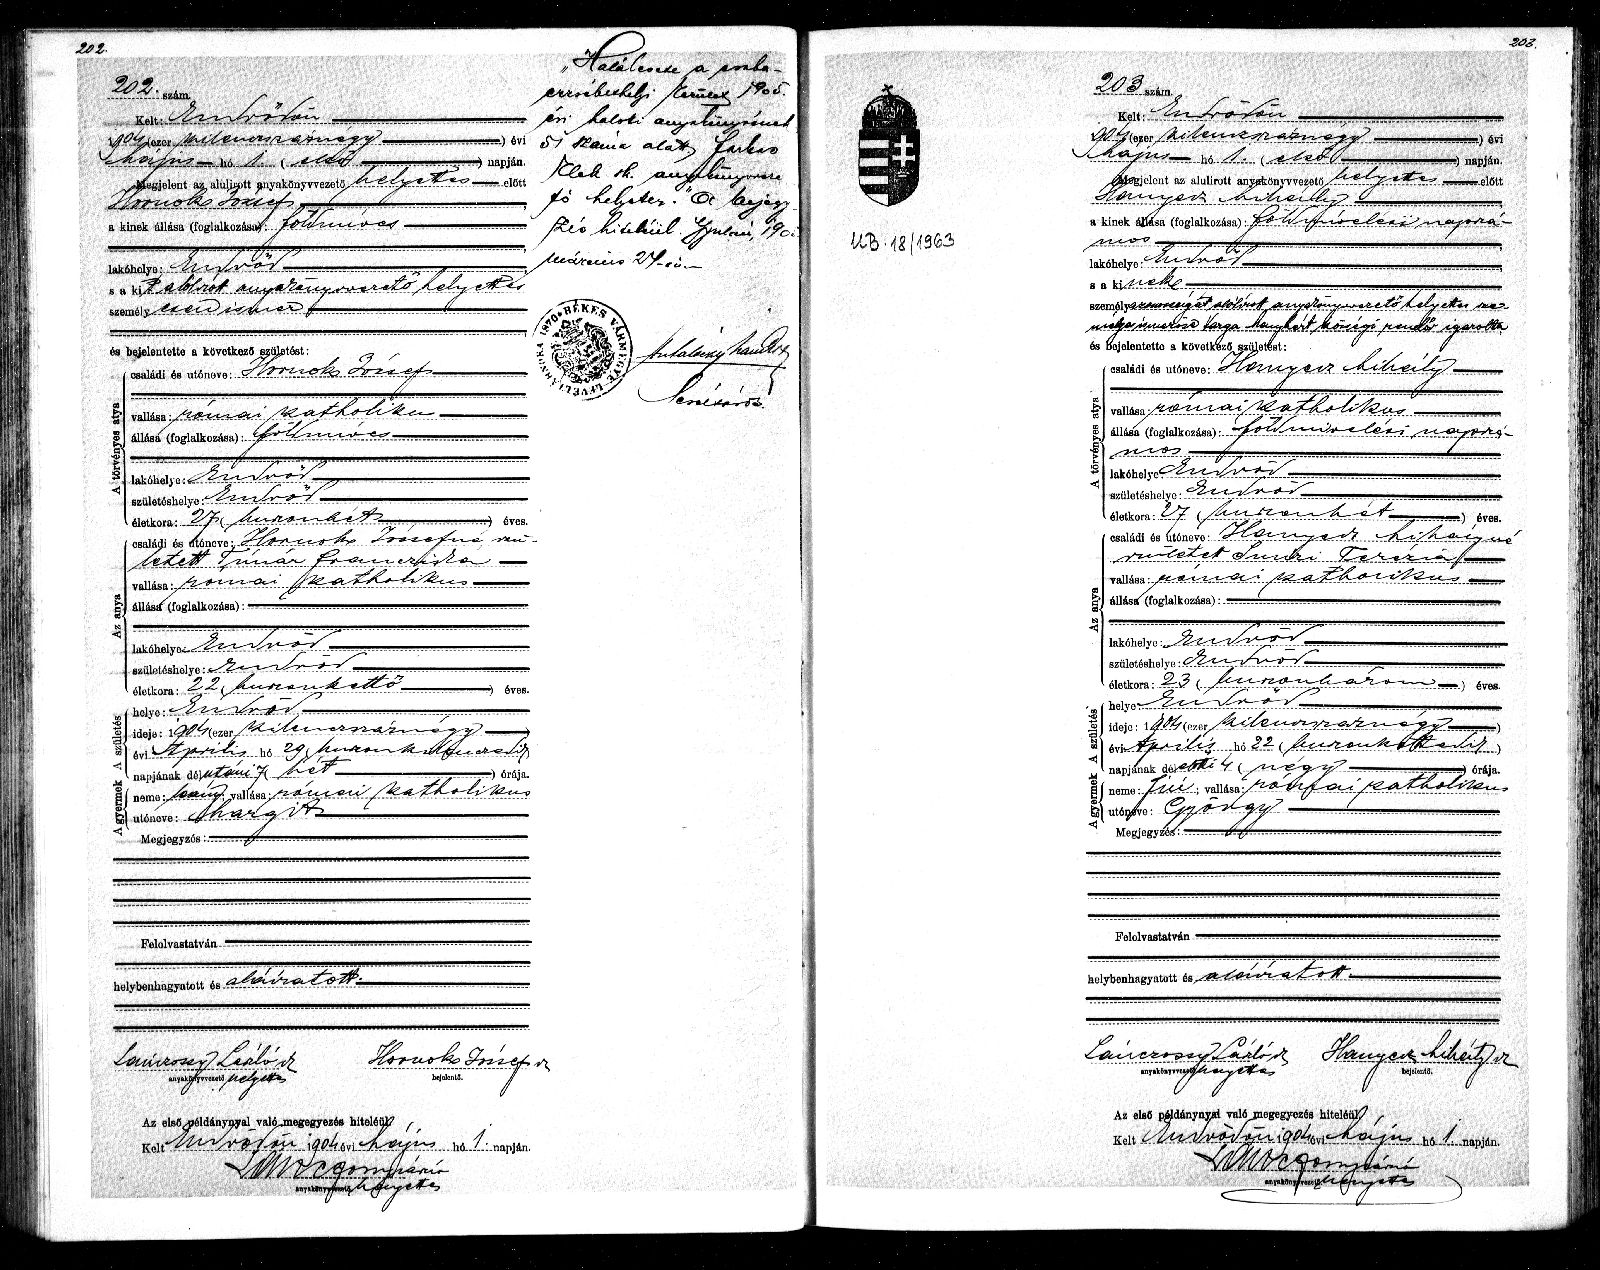 202.
202. szám.
Kelt: Endrődön
1904 (ezer kilenczszáznégy) évi
Május hó 1. (első) napján.
Megjelent az alulirott anyakönyvvezető helyettes előtt
Hornok József
a kinek állása (foglalkozása): földmíves
lakóhelye: Endrőd
s a kit alólirott anyakönyvvezető helyettes
személyesen ismer
és bejelentette a következő születést:
A törvényes atya
családi és utóneve: Hornok József
vallása: római katholikus
állása (foglalkozása): földmíves
lakóhelye: Endrőd
születéshelye: Endrőd
életkora: 27 (huszonhét) éves.
Az anya
családi és utóneve: Hornok Józsefné, szü-
letett Tímár Francziska
vallása: római katholikus
állása (foglalkozása):
lakóhelye: Endrőd
születéshelye: Endrőd
életkora: 22 (huszonkettő) éves.
A születés
helye: Endrőd
ideje: 1904 (ezer kilenczszáznégy)
évi Április hó 29 (huszonkilenczedik)
napjának délutáni 7 (hét) órája.
A gyermek
neme: leány; vallása: római katholikus
utóneve: Margit
Megjegyzés:
Felolvastatván
helybenhagyatott és aláíratott.
László
Hornok József
anyakönyvvezető helyettes
bejelentő.
Az első példánynyal való megegyezés hiteléül
Kelt Endrődön 1904 évi Május hó 1. napján.
anyakönyvvezető helyettes
"Halálesete a puszta-
kerület 1905.
évi haloti anyakönyvének
51 száma alatt, Farkas
Elek sk. anyakönyvveze
tő helyettes." Ez bejegy-
zés hiteléül. Gyulán, 190
márczius 24-én
BÉKES VÁRMEGYE LEVÉLTÁRNOKA 1870
203.
203 szám.
Kelt: Endrődön
1904 (ezer kilenczszáznégy) évi
Május hó 1. (első) napján.
Megjelent az alulirott anyakönyvvezető helyettes előtt
Hanyecz Mihály
a kinek állása (foglalkozása): földmívelési napszá-
mos
lakóhelye: Endrőd
s a kinek
személyazonosságát alólirott anyakönyvvezető helyettes sze-
mélyes ismerőse Varga községi rendőr igazolta
és bejelentette a következő születést:
A törvényes atya
családi és utóneve: Hanyecz Mihály
vallása: római katholikus
állása (foglalkozása): földmívelési napszá-
mos
lakóhelye: Endrőd
születéshelye: Endrőd
életkora: 27 (huszonhét) éves.
Az anya
családi és utóneve: Hanyecz Mihályné
született Terézia
vallása: római katholikus
állása (foglalkozása):
lakóhelye: Endrőd
születéshelye: Endrőd
életkora: 23 (huszonhárom) éves.
A születés
helye: Endrőd
ideje: 1904 (ezer kilenczszáznégy)
évi Április hó 22 (huszonkettedik)
napjának délelőtti 4 (négy) órája.
A gyermek
neme: fiú; vallása: római katholikus
utóneve: György
Megjegyzés:
Felolvastatván
helybenhagyatott és aláíratott
László
Hanyecz Mihály
anyakönyvvezető helyettes
bejelentő.
Az első példánynyal való megegyezés hiteléül
Kelt Endrődön 1904 évi Május hó 1. napján.
anyakönyvvezető helyettes
UB. 18/1963